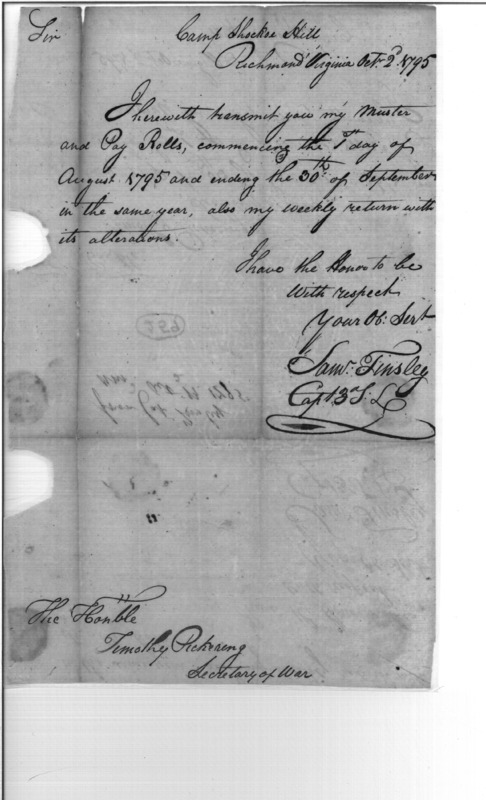 Sir
Camp Shockoe Hill
Richmond Virginia Octr. 2d. 1795
I herewith transmit you my Muster
and Pay Rolls, commencing the 1st day of
August 1795 and ending the 30th. of September
in the same year, also my weekly return with
its alterations.
I have the Honor to be
With respect
Your Ob: Sert
Saml. Tinsley
Capt 3d S: L
259
The Honble
Timothy Pickering
Secretary of War